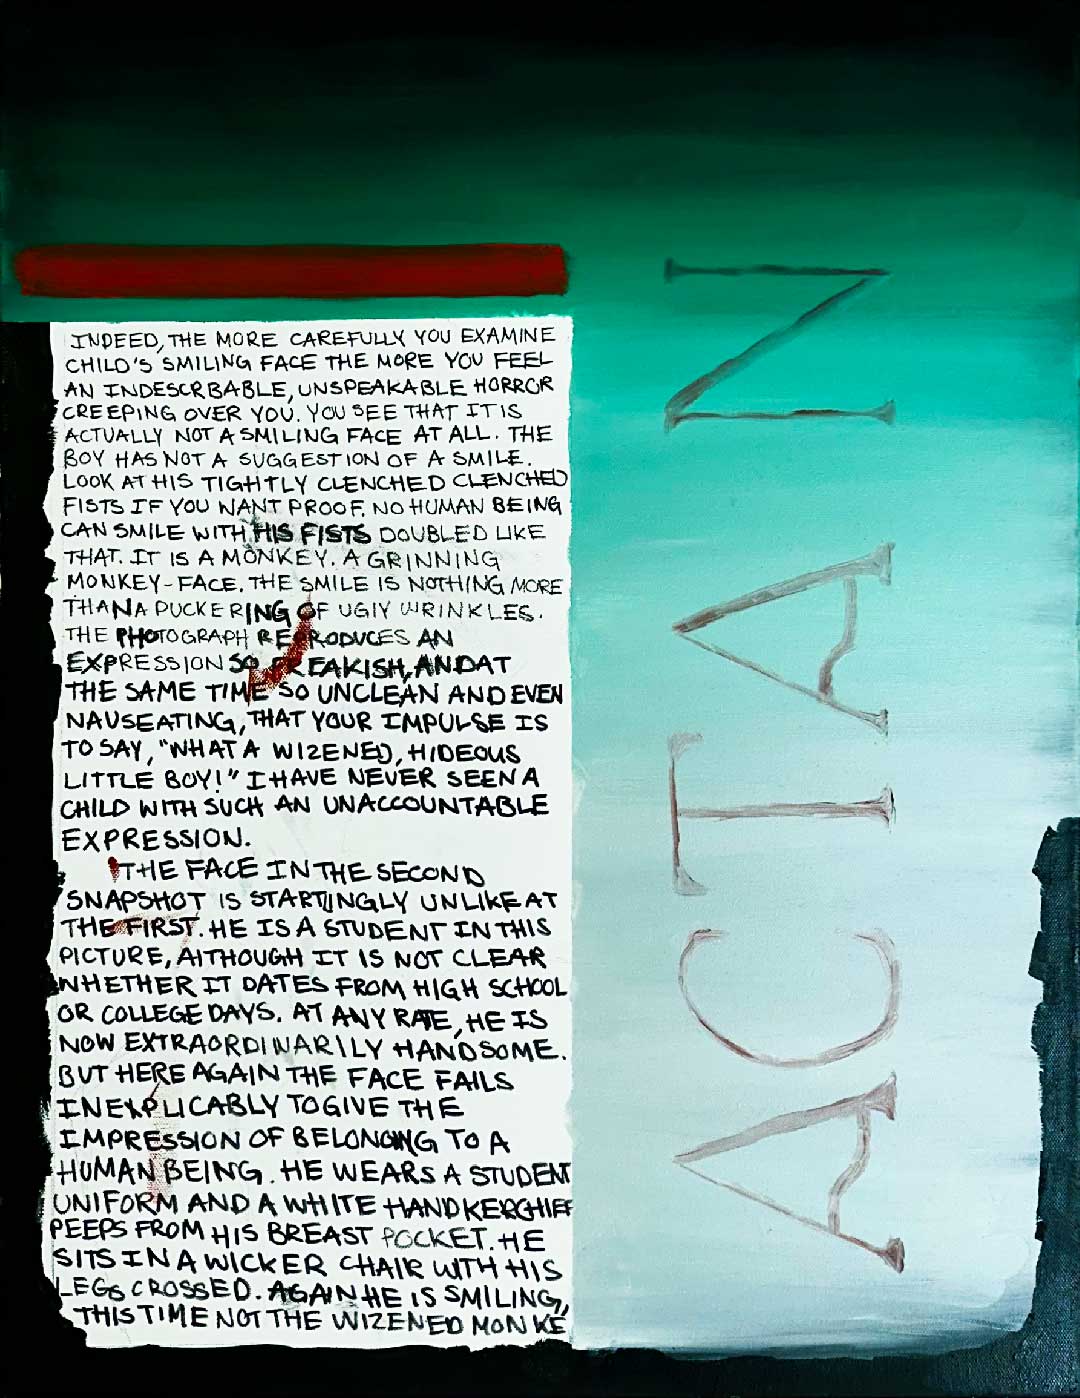 INDEED, THE MORE CAREFULLY YOU EXAMINE
CHILD'S SMILING FACE THE MORE YOU FEEL
AN INDESCRBABLE, UNSPEAKABLE HORROR
CREEPING OVER YOU. YOU SEE THAT IT IS
ACTUALLY NOT A SMILING FACE AT ALL. THE
BOY HAS NOT A SUGGESTION OF A SMILE.
LOOK AT HIS TIGHTLY CLENCHED CLENCHED
FISTS IF YOU WANT PROOF. NO HUMAN BEING
CAN SMILE WITH HIS FISTS DOUBLED LIKE
THAT. IT IS A MONKEY. A GRINNING
MONKEY-FACE. THE SMILE IS NOTHING MORE
THAN A PUCKERING OF UGLY WRINKLES.
THE PHOTOGRAPH REPRODUCES AN
EXPRESSION SO FREAKISH, AND AT
THE SAME TIME SO UNCLEAN AND EVEN
NAUSEATING, THAT YOUR IMPULSE IS
TO SAY, "WHAT A WIZENED, HIDEOUS
LITTLE BOY!" I HAVE NEVER SEEN A
CHILD WITH SUCH AN UNACCOUNTABLE
EXPRESSION.
THE FACE IN THE SECOND
SNAPSHOT IS STARTINGLY UNLIKE AT
THE FIRST. HE IS A STUDENT IN THIS
PICTURE, ALTHOUGH IT IS NOT CLEAR
WHETHER IT DATES FROM HIGH SCHOOL
OR COLLEGE DAYS. AT ANY RATE, HE IS
NOW EXTRAORDINARILY HANDSOME.
BUT HERE AGAIN THE FACE FAILS
INEXPLICABLY TO GIVE THE
IMPRESSION OF BELONGING TO A
HUMAN BEING. HE WEARS A STUDENT
UNIFORM AND A WHITE HANDKERCHIEF
PEEPS FROM HIS BREAST POCKET. HE
SITS IN A WICKER CHAIR WITH HIS
LEGS CROSSED. AGAIN HE IS SMILING,
THIS TIME NOT THE WIZENED MONKE
ACTAN